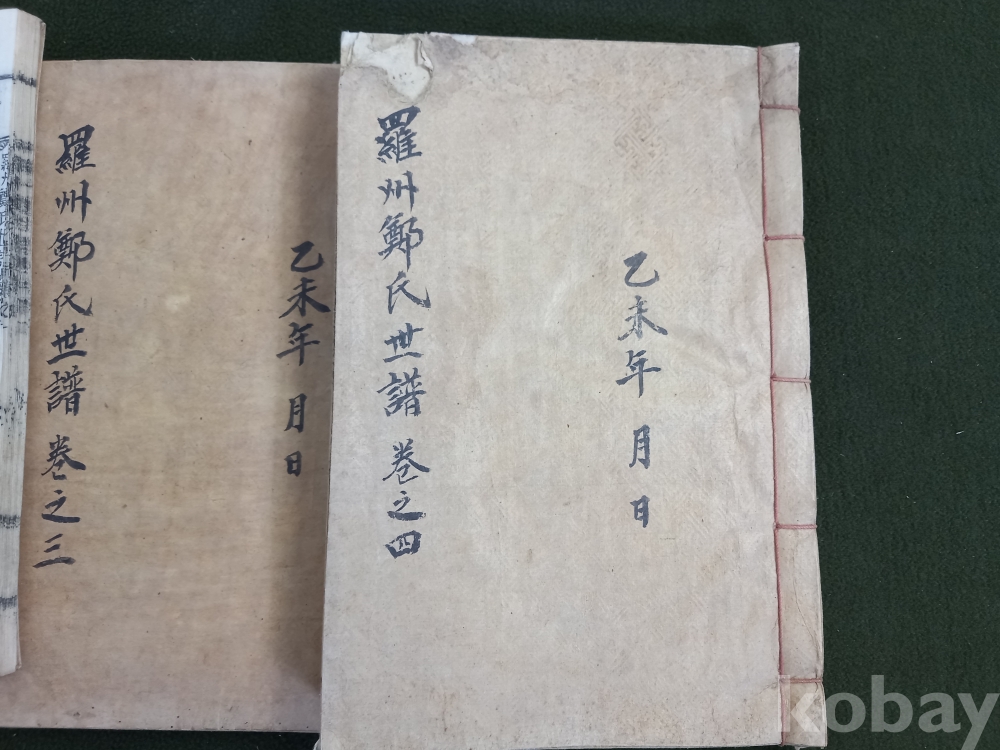 羅州鄭氏世譜 卷之三
乙未年 月 日
羅州鄭氏世譜 卷之四
乙未年 月 日
kobay